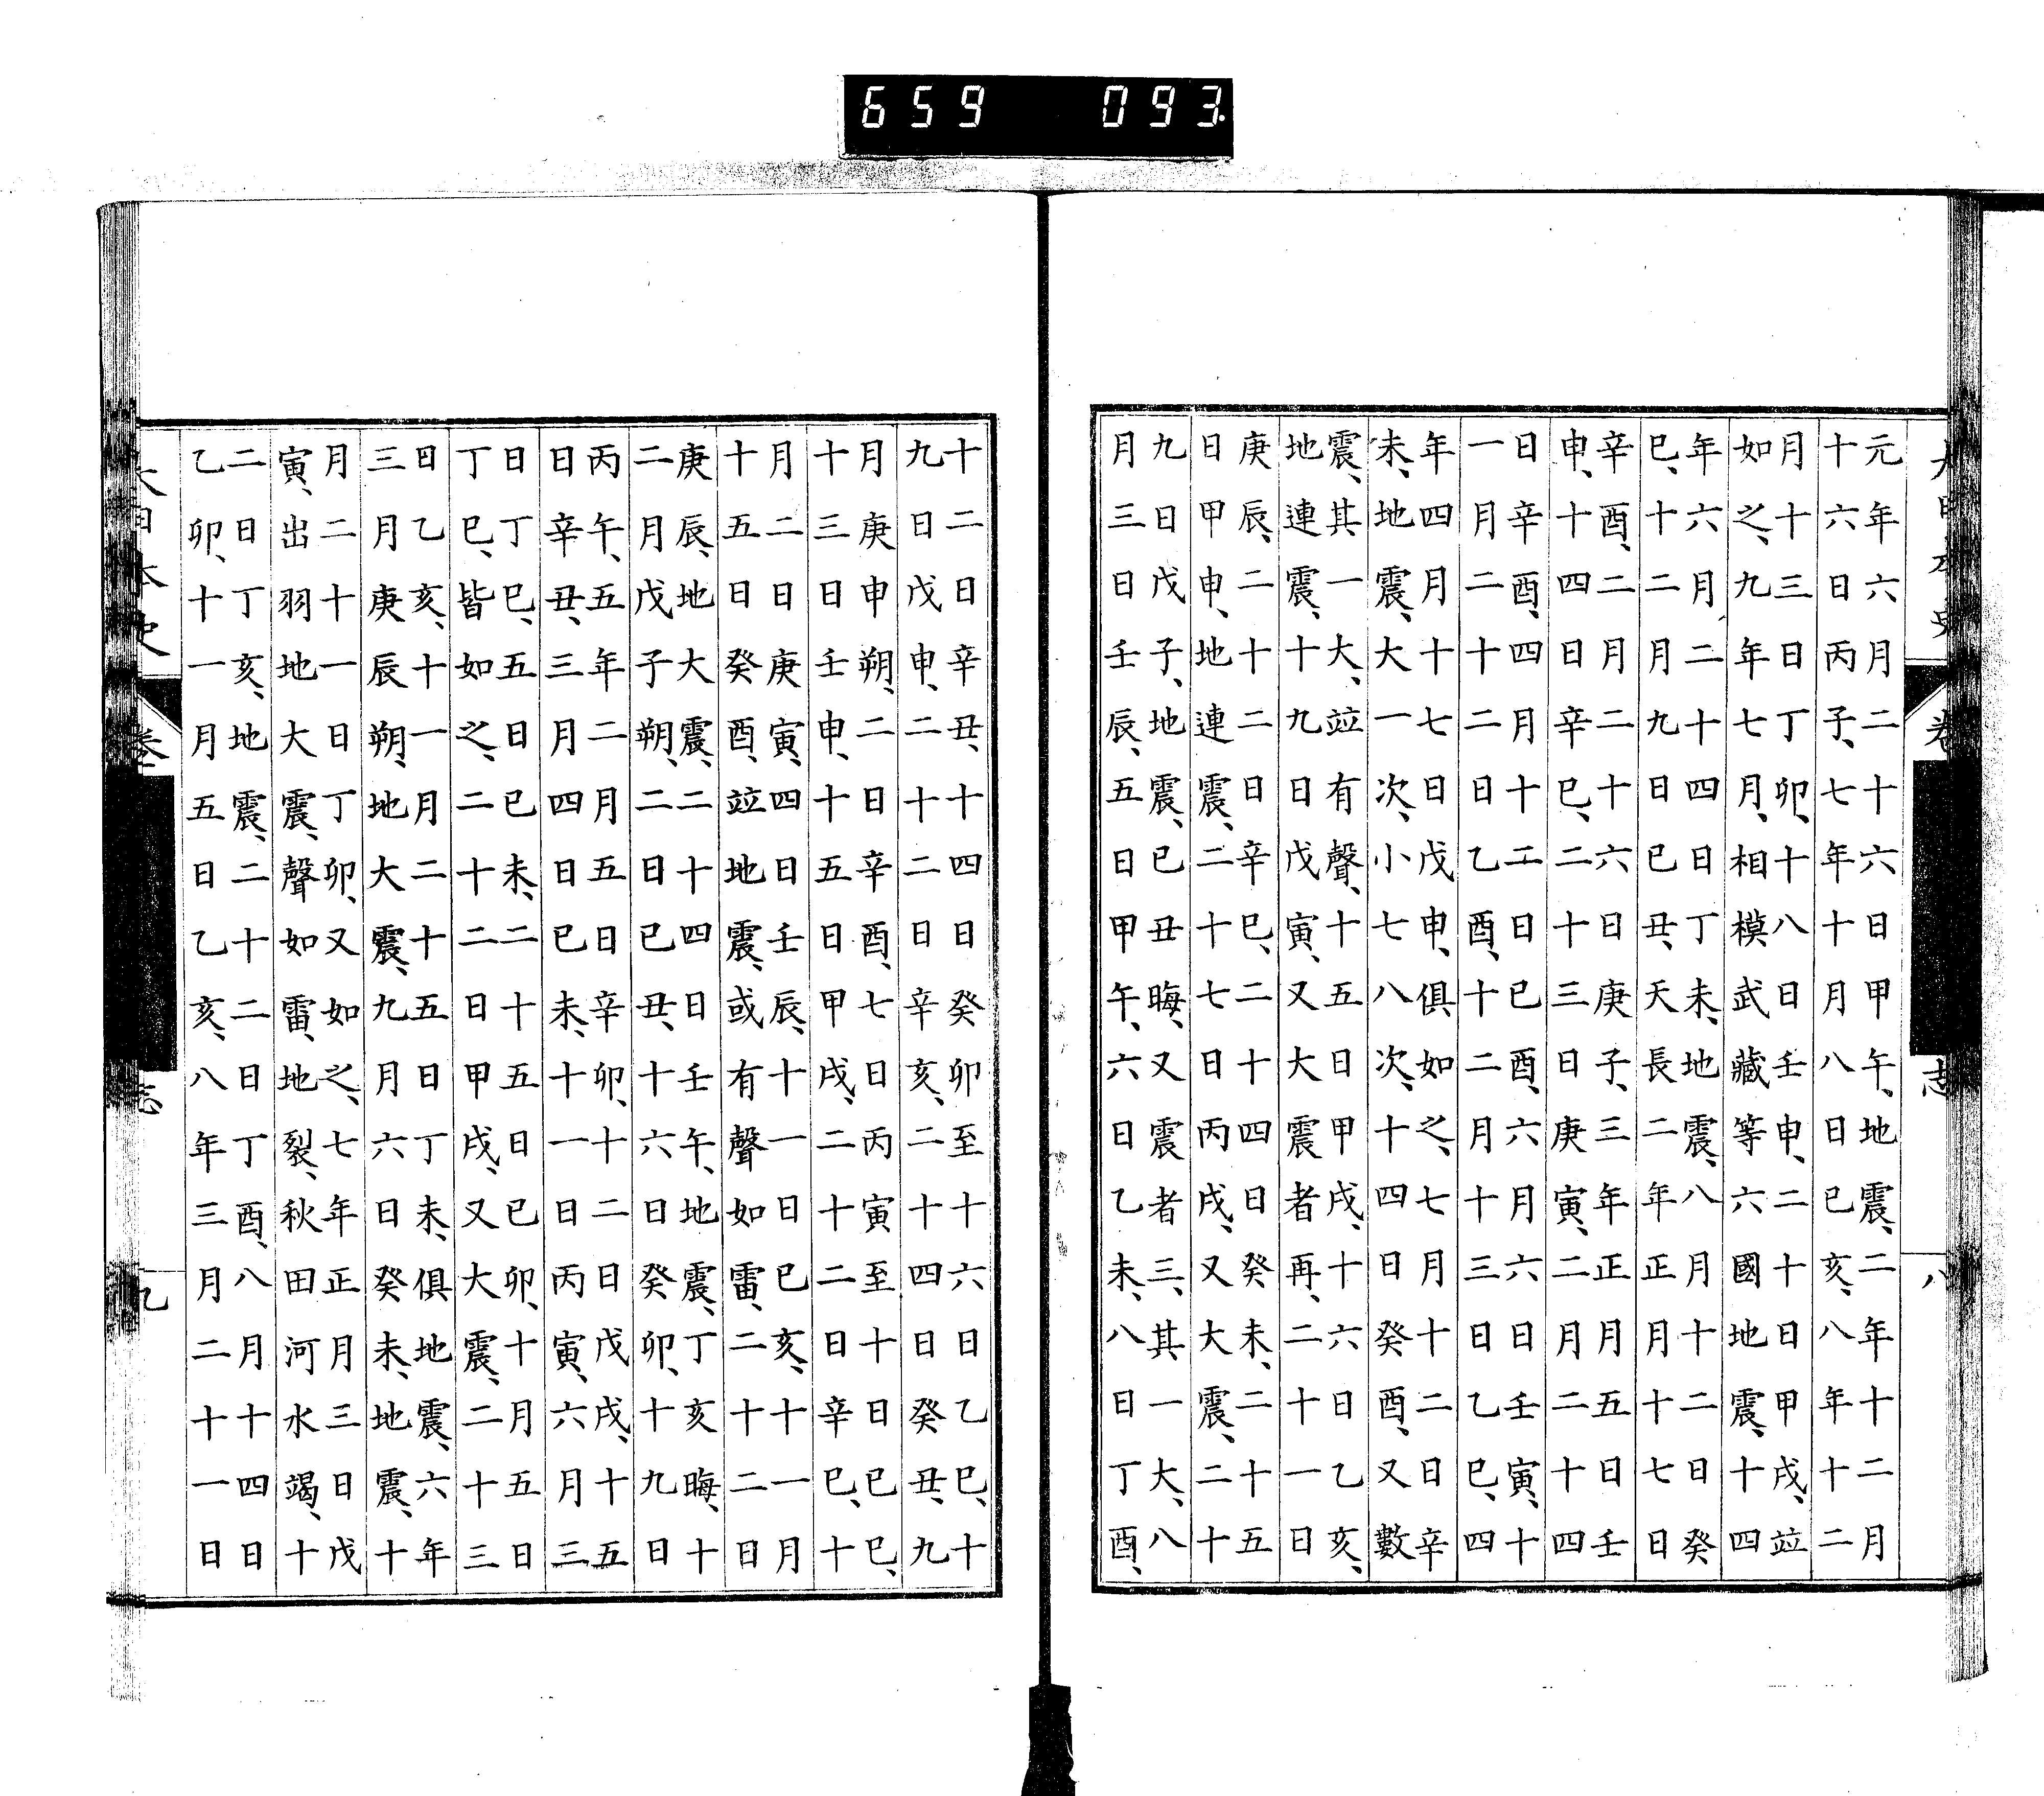 659 093
大日本史 卷 志 八
元年六月二十六日甲午、地震、二年十二月
十六日丙子、七年十月八日巳亥、八年十二
月十三日丁卯、十八日壬申、二十日甲戌、竝
如之、九年七月、相模武藏等六國地震、十四
年六月二十四日丁未、地震、八月十二日癸
巳、十二月九日巳丑、天長二年正月十七日
辛酉、二月二十六日庚子、三年正月五日壬
申、十四日辛巳、二十三日庚寅、二月二十四
日辛酉、四月十二日巳酉、六月六日壬寅、十
一月二十二日乙酉、十二月十三日乙巳、四
年四月十七日戊申、俱如之、七月十二日辛
未、地震、大一次、小七八次、十四日癸酉、又數
震、其一大、竝有聲、十五日甲戌、十六日乙亥、
地連震、十九日戊寅、又大震者再、二十一日
庚辰、二十二日辛巳、二十四日癸未、二十五
日甲申、地連震、二十七日丙戌、又大震、二十
九日戊子、地震、巳丑晦、又震者三、其一大、八
月三日壬辰、五日甲午、六日乙未、八日丁酉、
十二日辛丑、十四日癸卯至十六日乙巳、十
九日戊申、二十二日辛亥、二十四日癸丑、九
月庚申朔、二日辛酉、七日丙寅至十日巳巳、
十三日壬申、十五日甲戌、二十二日辛巳、十
月二日庚寅、四日壬辰、十一日巳亥、十一月
十五日癸酉、竝地震、或有聲如雷、二十二日
庚辰、地大震、二十四日壬午、地震、丁亥晦、十
二月戊子朔、二日巳丑、十六日癸卯、十九日
丙午、五年二月五日辛卯、十二日戊戌、十五
日辛丑、三月四日巳未、十一日丙寅、六月三
日丁巳、五日巳未、二十五日巳卯、十月五日
丁巳、皆如之、二十二日甲戌、又大震、二十三
日乙亥、十一月二十五日丁未、俱地震、六年
三月庚辰朔、地大震、九月六日癸未、地震、十
月二十一日丁卯、又如之、七年正月三日戊
寅、出羽地大震、聲如雷、地裂、秋田河水竭、十
二日丁亥、地震、二十二日丁酉、八月十四日
乙卯、十一月五日乙亥、八年三月二十一日
大日本史 卷 志 九